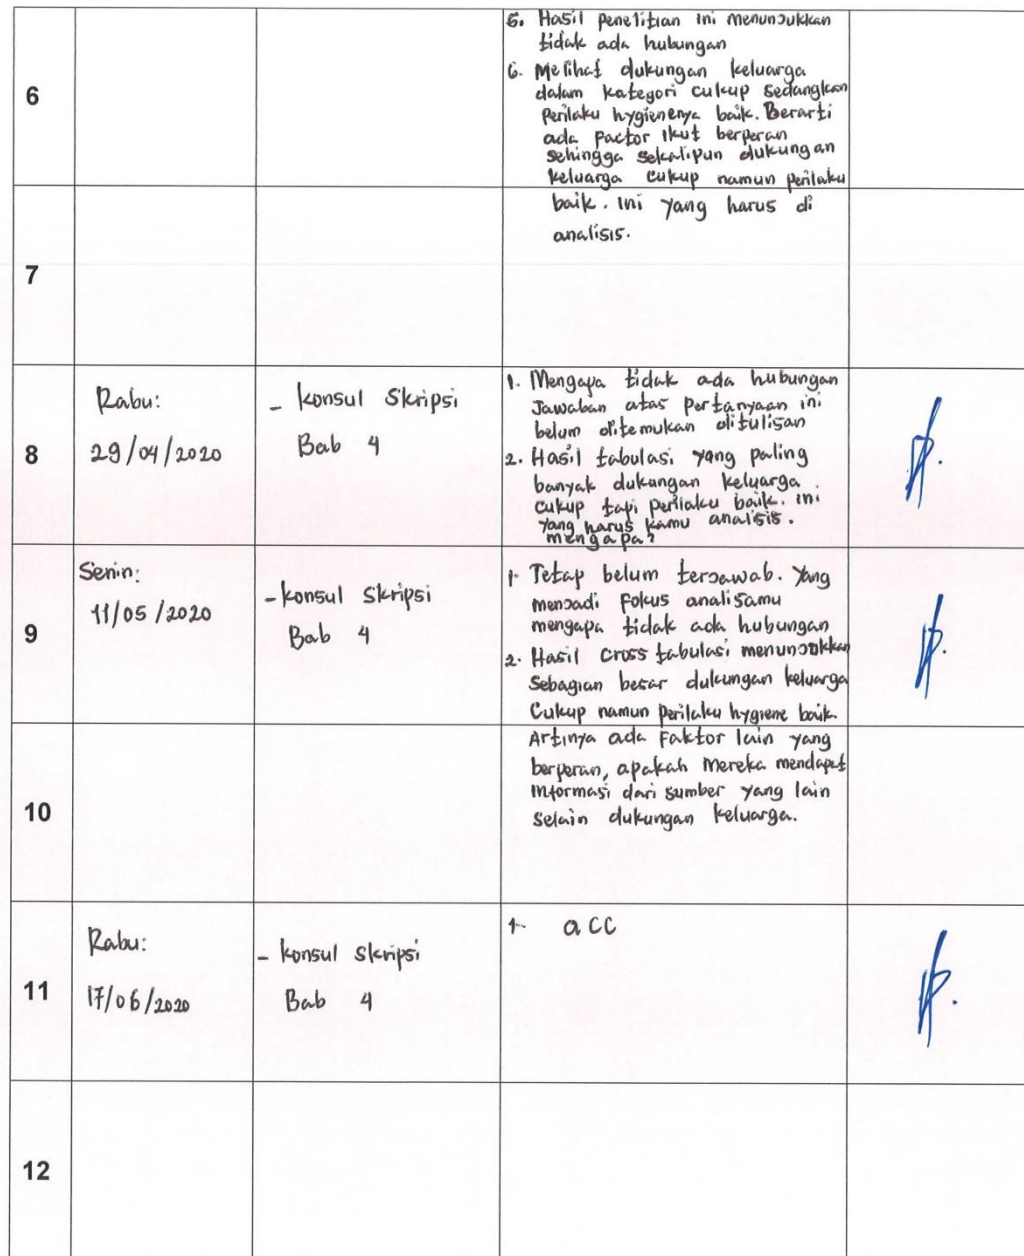 6
5. Hasil penelitian ini menunjukkan
tidak ada hubungan
6. Melihat dukungan keluarga
dalam kategori cukup sedangkan
perilaku hygienenya baik. Berarti
ada factor ikut berperan
sehingga sekalipun dukungan
keluarga cukup namun perilaku
baik. ini yang harus di
analisis.
7
8
Rabu:
29/04/2020
- konsul Skripsi
Bab 4
1. Mengapa tidak ada hubungan
Jawaban atas pertanyaan ini
belum ditemukan ditulisan
2. Hasil tabulasi yang paling
banyak dukungan keluarga
cukup tapi perilaku baik. ini
yang harus kamu analisis.
mengapa?
9
Senin:
11/05/2020
- konsul Skripsi
Bab 4
1. Tetap belum terjawab. Yang
menjadi fokus analisamu
mengapa tidak ada hubungan
2. Hasil cross tabulasi menunjukkan
Sebagian besar dukungan keluarga
Cukup namun perilaku hygiene baik.
Artinya ada Faktor lain yang
berperan, apakah Mereka mendapat
Informasi dari sumber yang lain
Selain dukungan keluarga.
10
11
Rabu:
17/06/2020
- konsul Skripsi
Bab 4
1. acc
12